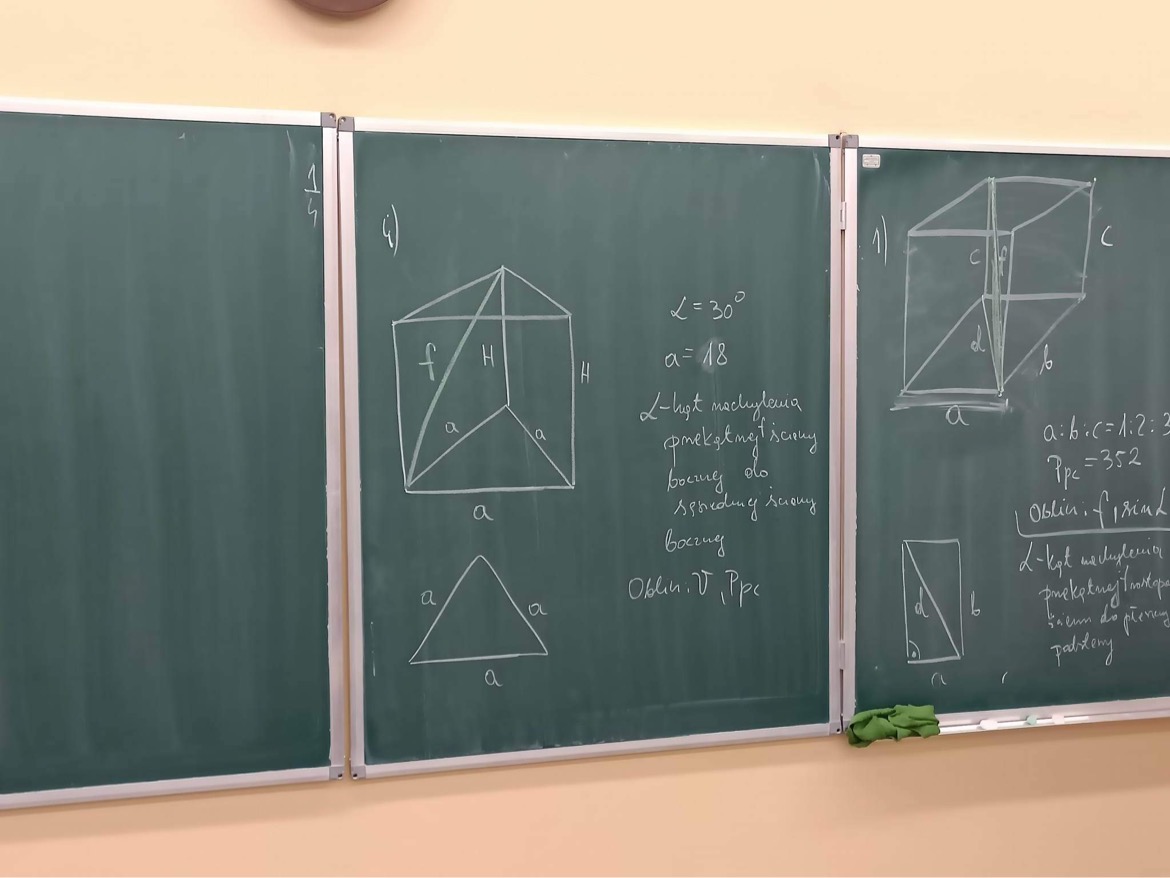 1
4
4)
f
H
H
a
a
a
a
a
a
α = 30°
a = 18
α - kąt nachylenia
przekątnej ściany
bocznej do
sąsiedniej ściany
bocznej
Oblicz: V, Ppc
1)
c
f
c
d
b
a
a:b:c = 1:2:3
Ppc = 352
Oblicz: f, sin α
α - kąt nachylenia
przekątnej
ścian do
podstawy
d
b
a